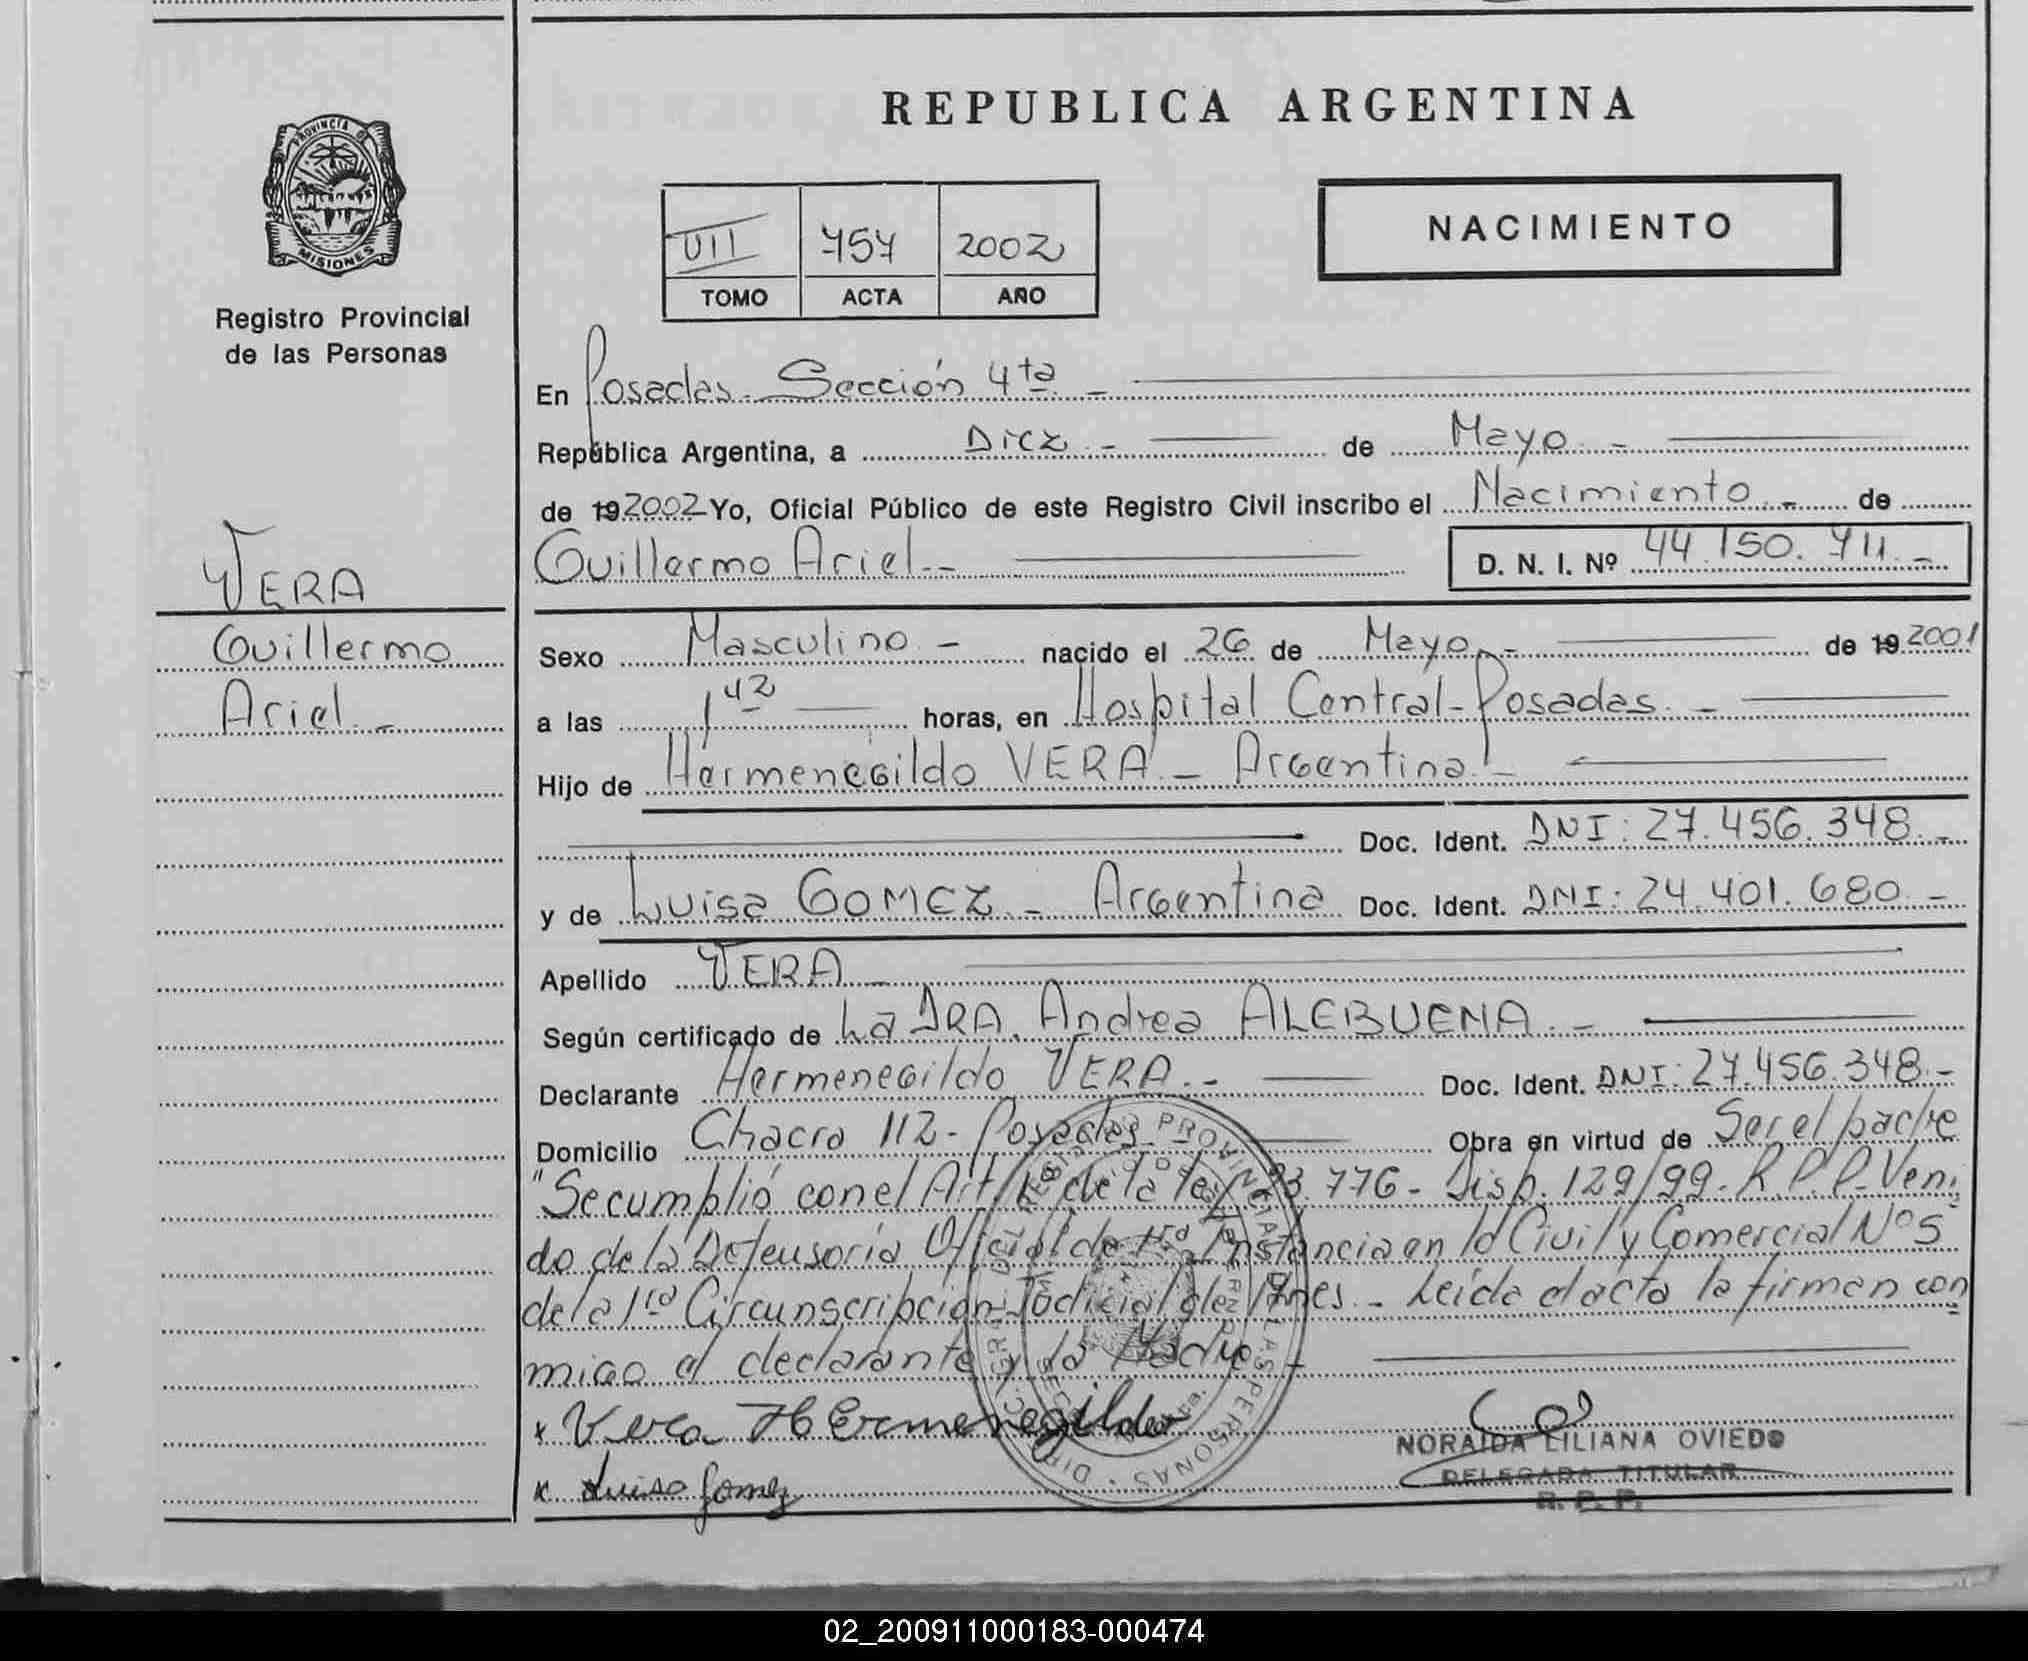 REPUBLICA ARGENTINA
PROVINCIA DE
MISIONES
Registro Provincial
de las Personas
VII 757 2002
TOMO ACTA AÑO
NACIMIENTO
En Posadas - Sección 4ta -
República Argentina, a Diez - de Mayo -
de 19 2002 Yo, Oficial Público de este Registro Civil inscribo el Nacimiento - de
Guillermo Ariel - D. N. I. Nº 44.150.711 -
VERA
Guillermo
Ariel -
Sexo Masculino - nacido el 26 de Mayo - de 19 2001
a las 1 42 horas, en Hospital Central - Posadas -
Hijo de Hermenegildo VERA - Argentina -
Doc. Ident. DNI: 27.456.348 -
y de Luisa GOMEZ - Argentina Doc. Ident. DNI: 24.401.680 -
Apellido VERA -
Según certificado de La DRA. Andrea ALEBUENA -
Declarante Hermenegildo VERA - Doc. Ident. DNI: 27.456.348 -
Domicilio Chacra 112 - Posadas - Obra en virtud de Ser el padre
"Se cumplió con el Art. de la ley 23.776 - Disp. 129/99 - R.P.P. Veni
do de la Defensoria Oficial de 1ra Instancia en lo Civil y Comercial Nº 5
de la 1ra Circunscripcion Judicial de Mnes. - Leida el acta la firman con
migo el declarante y la Madre -
x Vera Hermenegildo
x Luisa Gomez
NORAIDA LILIANA OVIEDO
DELEGADA TITULAR
R. P. P.
02_200911000183-000474